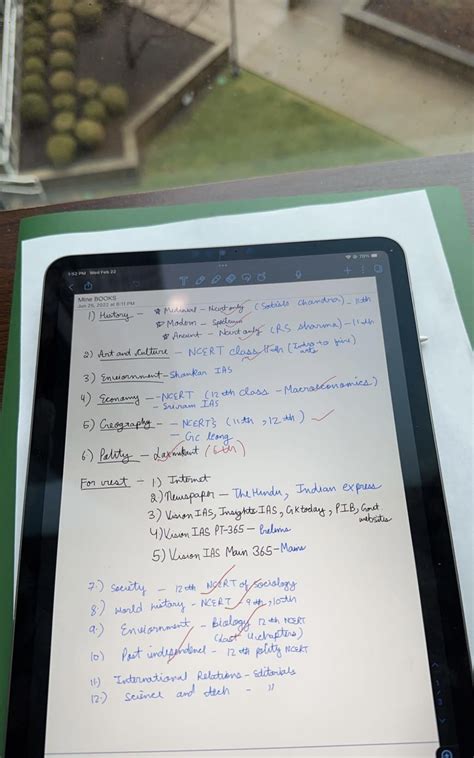 1:52 PM Wed Feb 22
79%
Mine BOOKS
Jan 25, 2022 at 8:11 PM
1) History - * Medieval - Ncert only (Satish Chandra) - 11th
* Modern - Spectrum
* Ancient - Ncert only (RS Sharma) - 11th
2) Art and Culture - NCERT class 11th (Intro to fine arts)
3) Enviornment - Shankar IAS
4) Economy - NCERT (12th class - Macroeconomics)
- Sriram IAS
5) Geography - NCERT's (11th, 12th)
- GC leong
6) Polity - Laxmikant (6th)
For rest - 1) Internet
2) Newspaper - The Hindu, Indian express
3) Vision IAS, Insights IAS, Gk today, P.I.B, Govt. websites
4) Vision IAS PT-365 - Prelims
5) Vision IAS Main 365 - Mains
7.) Society - 12th NCERT of Sociology
8.) World history - NCERT - 9th, 10th
9.) Enviornment - Biology 12th NCERT
(Last 4 chapters)
10) Post independence - 12th polity NCERT
11) International Relations - Editorials
12.) Science and tech - "